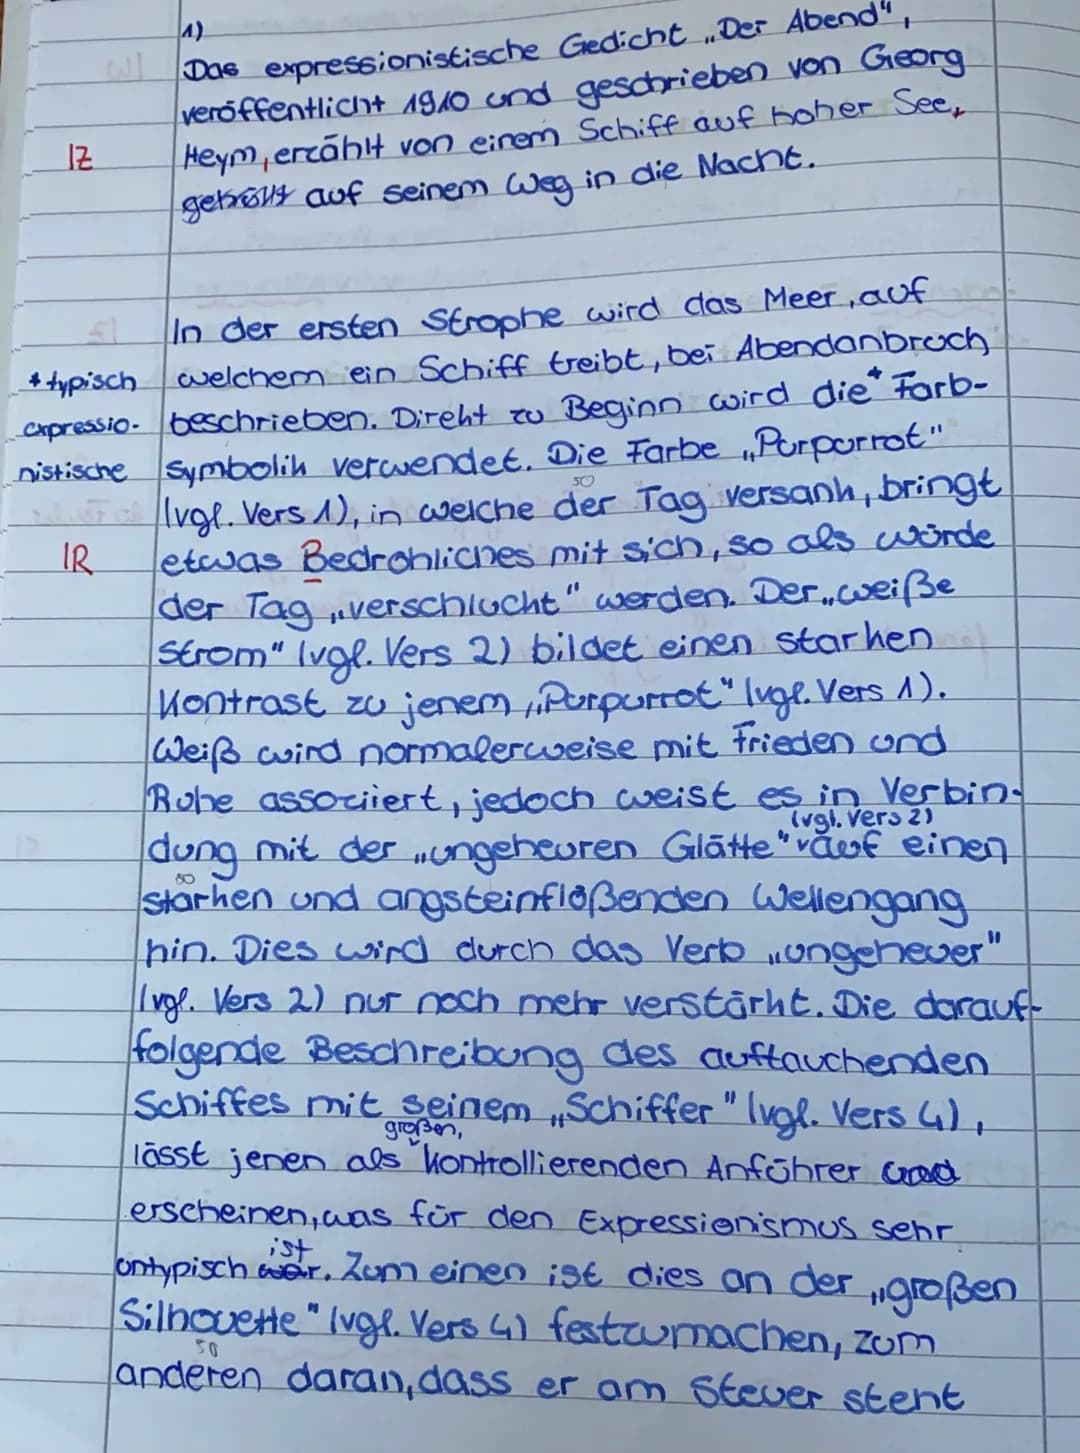 1)
Das expressionistische Gedicht „Der Abend",
veröffentlicht 1910 und geschrieben von Georg
IZ Heym, erzählt von einem Schiff auf hoher See,
auf seinem Weg in die Nacht.
In der ersten Strophe wird das Meer, auf
* typisch welchem ein Schiff treibt, bei Abendanbruch
expressio- beschrieben. Direkt zu Beginn wird die* Farb-
nistische symbolik verwendet. Die Farbe „Purpurrot"
50
(vgl. Vers 1), in welche der Tag versank, bringt
IR etwas Bedrohliches mit sich, so als würde
der Tag „verschluckt" werden. Der „weiße
Strom" (vgl. Vers 2) bildet einen starken
Kontrast zu jenem „Purpurrot" (vgl. Vers 1).
Weiß wird normalerweise mit Frieden und
Ruhe assoziiert, jedoch weist es in Verbin-
(vgl. Vers 2)
dung mit der „ungeheuren Glätte" auf einen
starken und angsteinflößenden Wellengang
hin. Dies wird durch das Verb „ungeheuer"
(vgl. Vers 2) nur noch mehr verstärkt. Die darauf-
folgende Beschreibung des auftauchenden
Schiffes mit seinem „Schiffer" (vgl. Vers 4),
großen,
lässt jenen als kontrollierenden Anführer
erscheinen, was für den Expressionismus sehr
ist
untypisch war. Zum einen ist dies an der „großen
Silhouette" (vgl. Vers 4) festzumachen, zum
anderen daran, dass er am Steuer steht